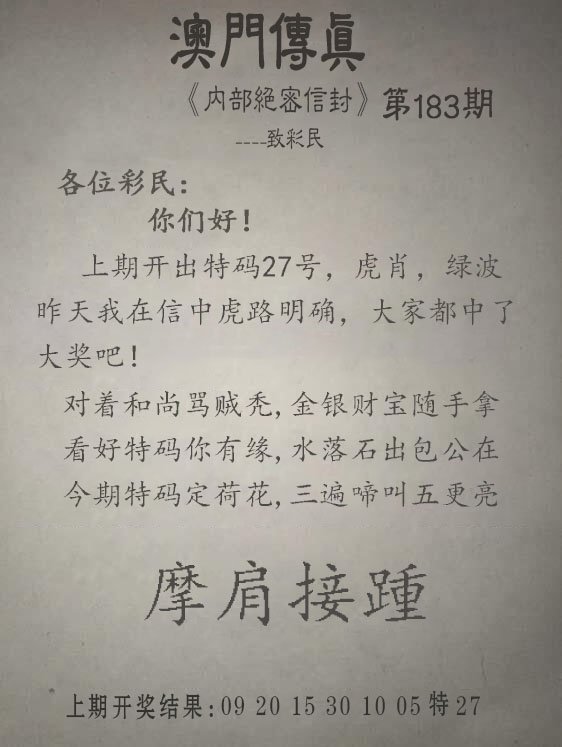 澳門傳眞
《内部絕密信封》第183期
----致彩民
各位彩民：
你们好！
上期开出特码27号，虎肖，绿波
昨天我在信中虎路明确，大家都中了
大奖吧！
对着和尚骂贼秃,金银财宝随手拿
看好特码你有缘,水落石出包公在
今期特码定荷花,三遍啼叫五更亮
摩肩接踵
上期开奖结果:09 20 15 30 10 05特27